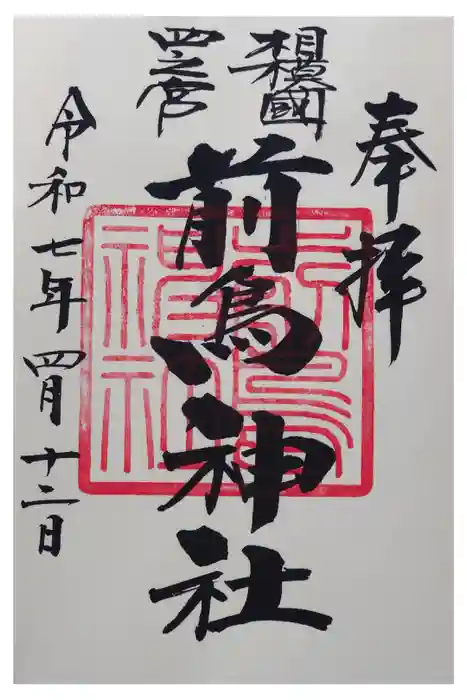 奉拝
相模國
四之宮
前鳥神社
令和七年四月十二日
前鳥
神社